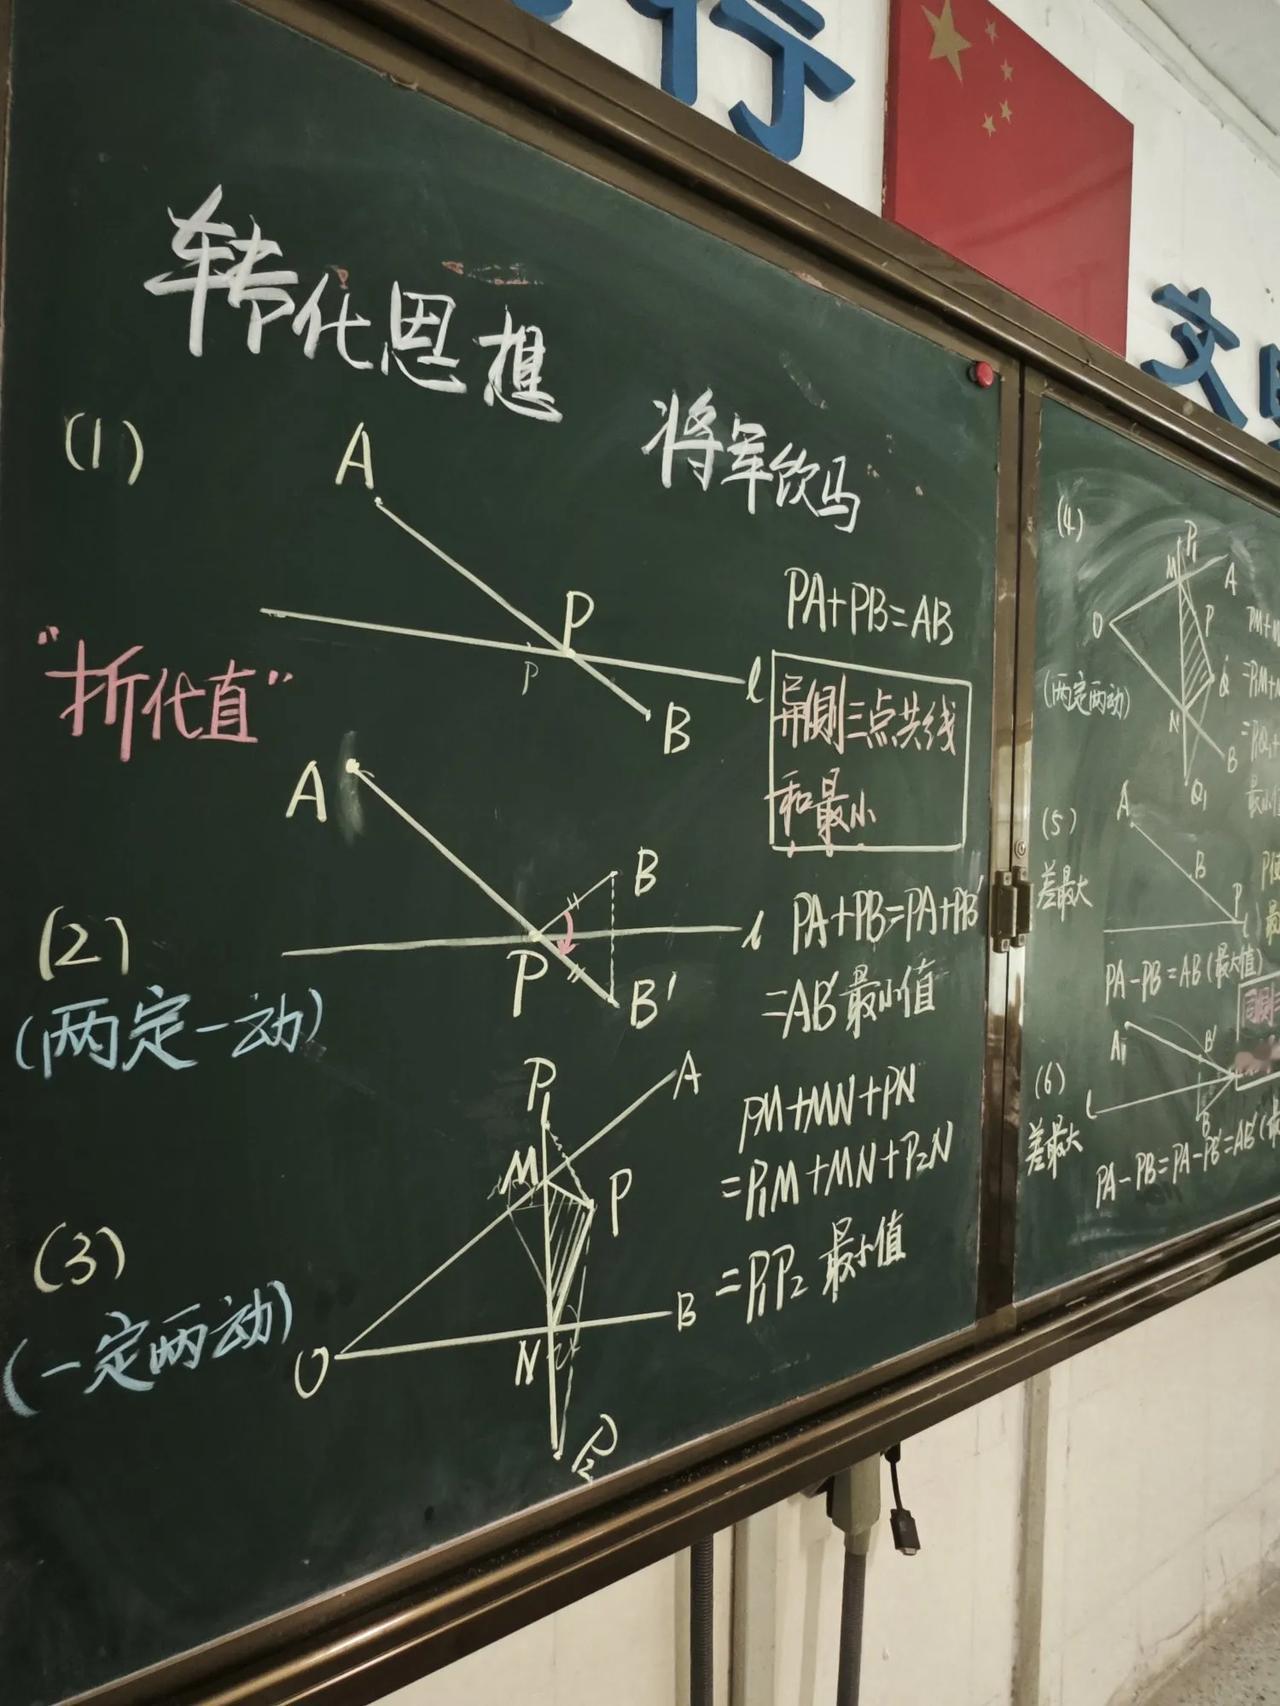 行
文
转化思想
将军饮马
(1)
A
P
P
l
B
PA+PB=AB
异侧三点共线
和最小
"折代直"
(2)
(两定一动)
A
B
l
P
B'
PA+PB=PA+PB'
=AB'最小值
(3)
(一定两动)
P₁
A
M
P
O
N
B
P₂
PM+MN+PN
=P₁M+MN+P₂N
=P₁P₂ 最小值
(4)
(两定两动)
P₁
M
A
O
P
Q
N
B
Q₁
PM+
=P₁M+
=P₁Q₁
最小
(5)
差最大
A
B
P
l
PA-PB=AB(最大值)
同侧
(6)
差最大
A
B'
l
B
PA-PB=PA-PB'=AB'(